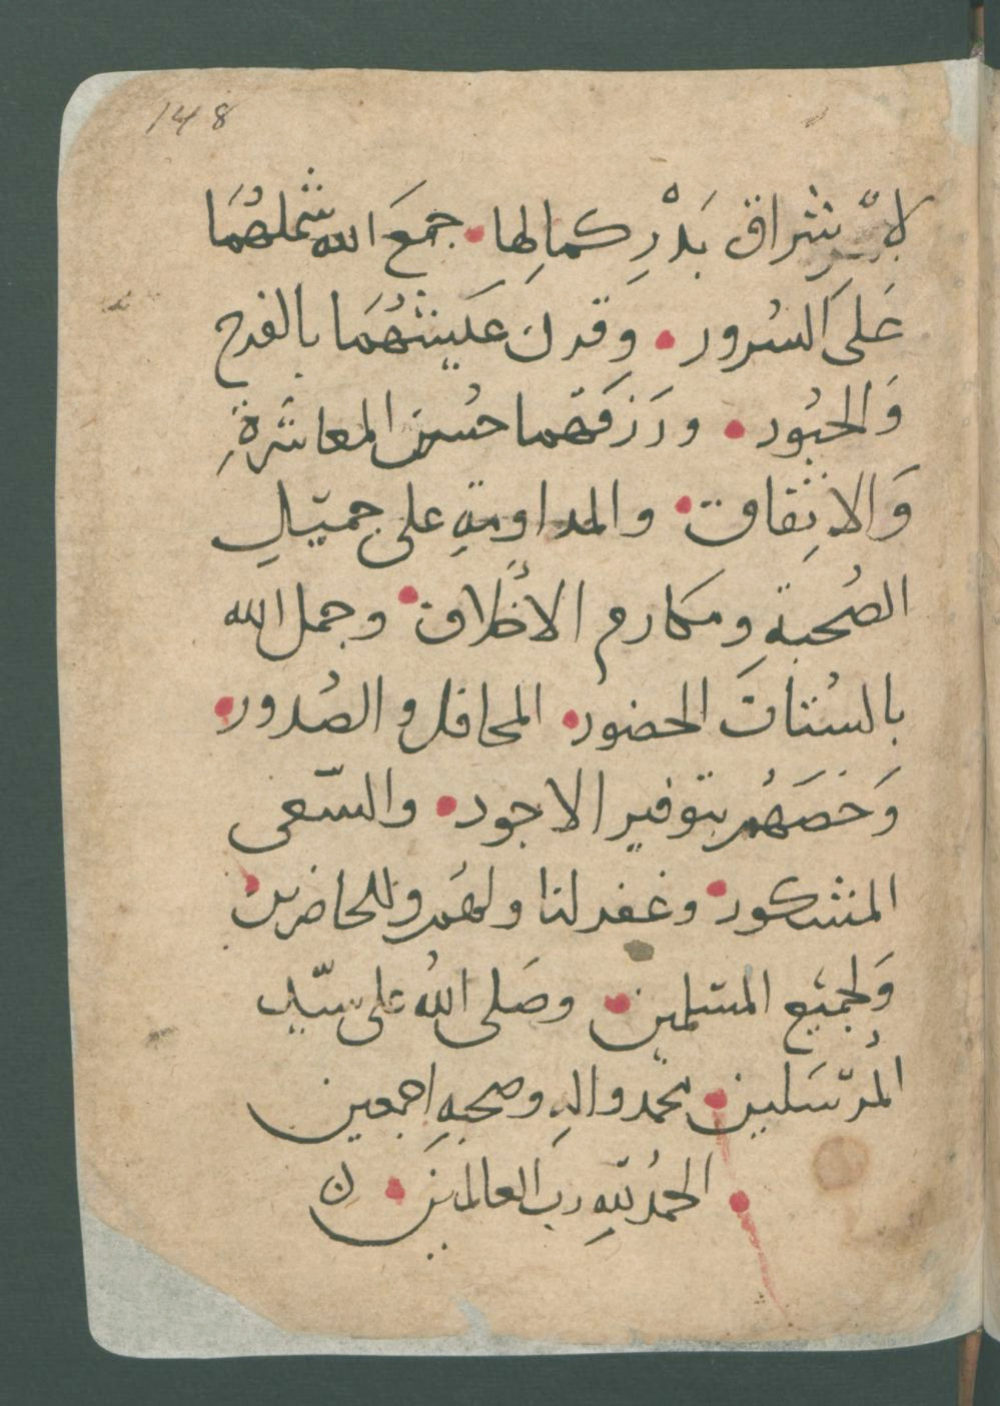 148
لإشراق بَدْرِ كمالِها. جمعَ الله شملهُمَا
عَلى السُرور. وقرن عَيشهُمَا بالفرح
وَالحبُور. ورَزقهما حُسن المعاشَرةِ
وَالاتِفاق. والمداومةِ على جميلِ
الصُحبةِ ومكارم الأخلاق. وجمل الله
بالسُنتاتَ الحضور. المحافل والصُدور.
وَخصَهُم بتوفير الاجور. والسّعى
المشكور. وغفر لنا ولهُم وللحاضرين.
وَلجميع المسلمين. وصَلى اللهُ على سيّد
المُرسَلين. محمد والهِ وصحبهِ اجمعين
. الحمدُ للهِ رب العالمينَ. ن